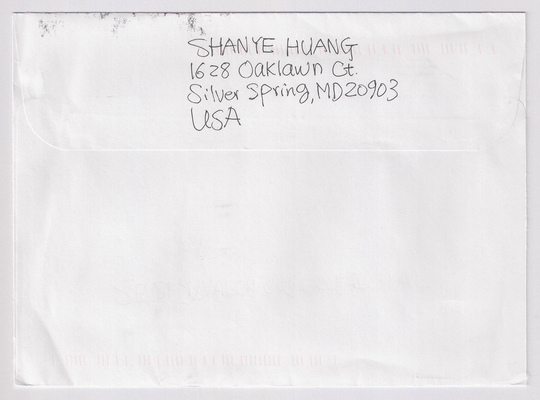 SHANYE HUANG
1628 Oaklawn Ct.
Silver Spring, MD 20903
USA